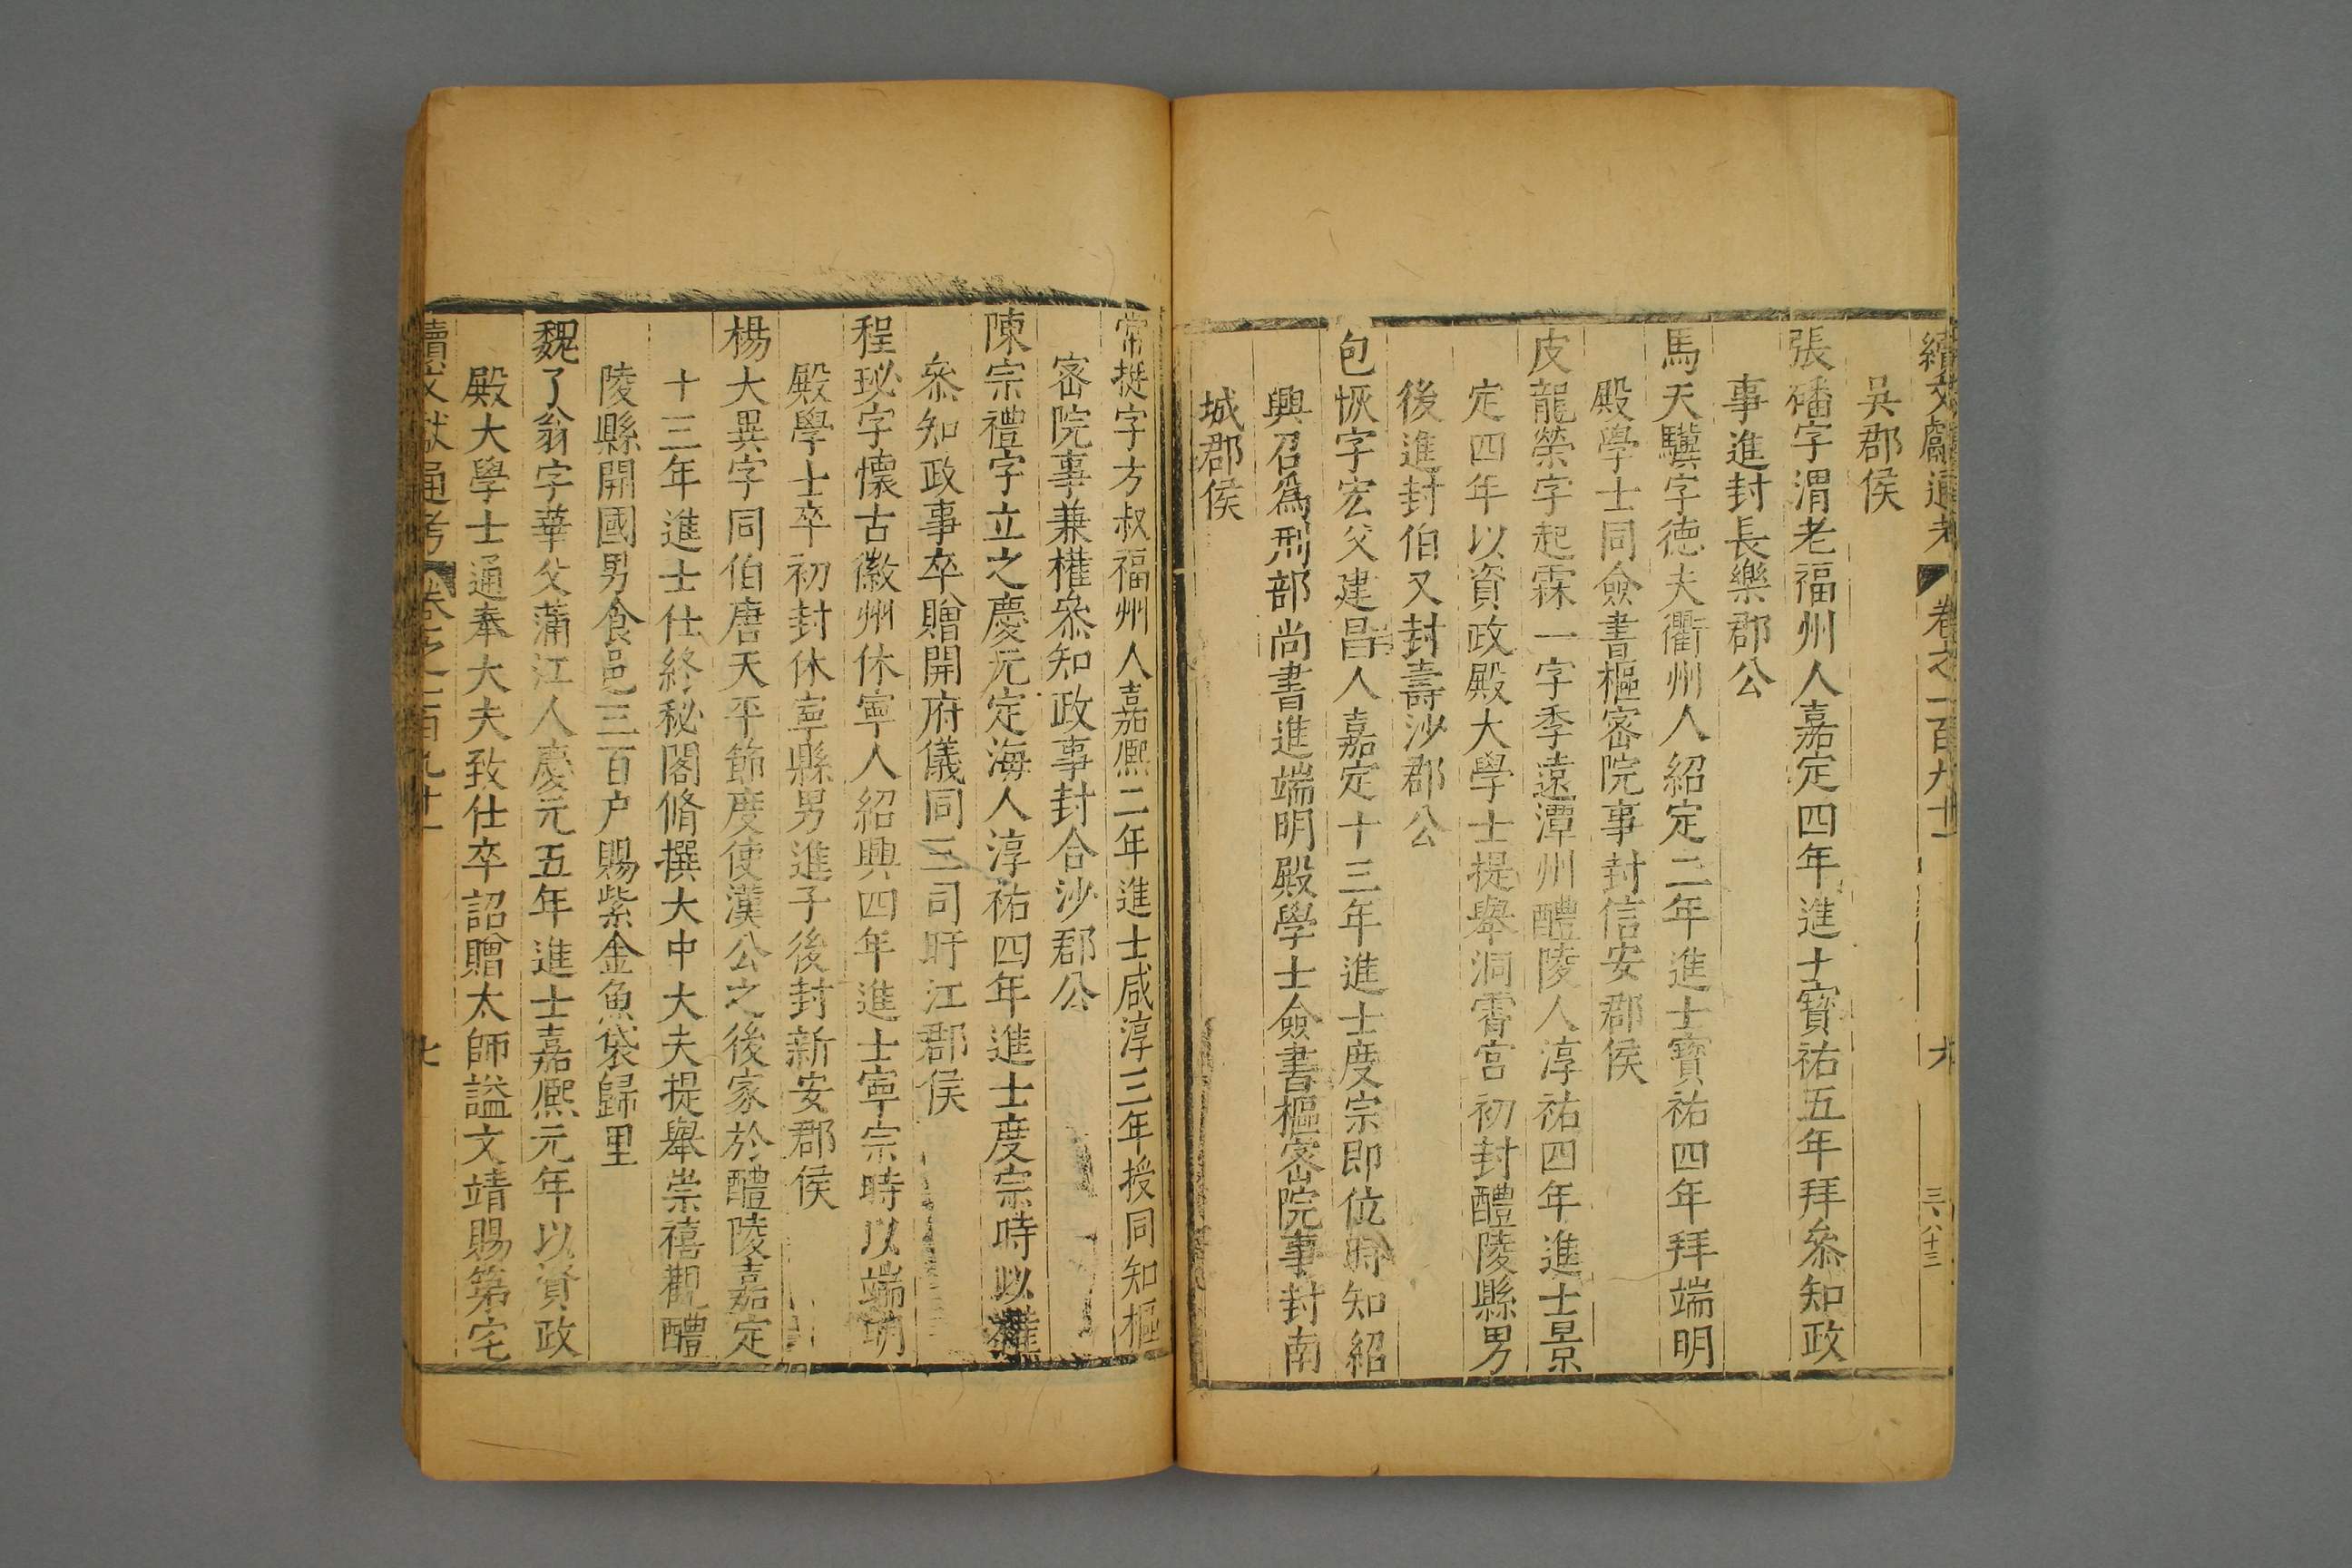 續文獻通考 卷之一百九十一 六 三八十三
吳郡侯
張磻字渭老福州人嘉定四年進士寶祐五年拜叅知政
事進封長樂郡公
馬天驥字德夫衢州人紹定二年進士寶祐四年拜端明
殿學士同僉書樞宻院事封信安郡侯
皮龍榮字起霖一字季遠潭州醴陵人淳祐四年進士景
定四年以資政殿大學士提舉洞霄宫初封醴陵縣男
後進封伯又封壽沙郡公
包恢字宏父建昌人嘉定十三年進士度宗即位時知紹
興召爲刑部尚書進端明殿學士僉書樞宻院事封南
城郡侯
常挺字方叔福州人嘉熈二年進士咸淳三年授同知樞
宻院事兼權叅知政事封合沙郡公
陳宗禮字立之慶元定海人淳祐四年進士度宗時以權
叅知政事卒贈開府儀同三司盱江郡侯
程珌字懷古徽州休寧人紹興四年進士寧宗時以端明
殿學士卒初封休寧縣男進子後封新安郡侯
楊大異字同伯唐天平節度使漢公之後家於醴陵嘉定
十三年進士仕終秘閣脩撰大中大夫提舉崇禧觀醴
陵縣開國男食邑三百户賜紫金魚袋歸里
魏了翁字華父蒲江人慶元五年進士嘉熈元年以資政
殿大學士通奉大夫致仕卒詔贈太師謚文靖賜第宅
續文獻通考 卷之一百九十一 七